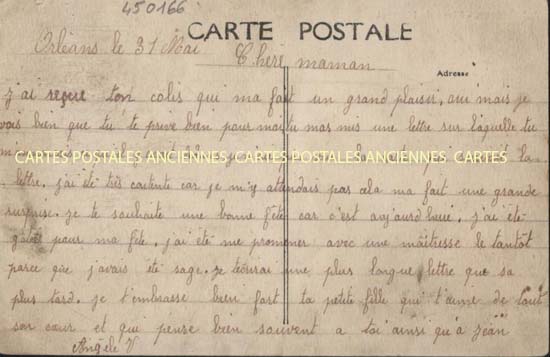 450166
CARTE POSTALE
Orléans le 31 Mai
Chère maman
Adresse
j'ai reçere ton colis qui ma fait un grand plaisir, oui mais je
vois bien que tu te prive bien pour moi tu mas mis une lettre sur laquelle tu
CARTES POSTALES ANCIENNES CARTES POSTALES ANCIENNES CARTES
lettre. j'ai été très contente car je m'y attendais pas cela ma fait une grande
surprise. je te souhaite une bonne fête car c'est aujourd'hui. j'ai été
gâtée pour ma fête. j'ai été me promener avec une maîtresse le tantôt
parce que j'avais été sage. je t'écrirai une plus longue lettre que sa
plus tard. je t'embrasse bien fort ta petite fille qui t'aime de tout
son cœur et qui pense bien souvent a toi ainsi qu'a jean
Angèle V